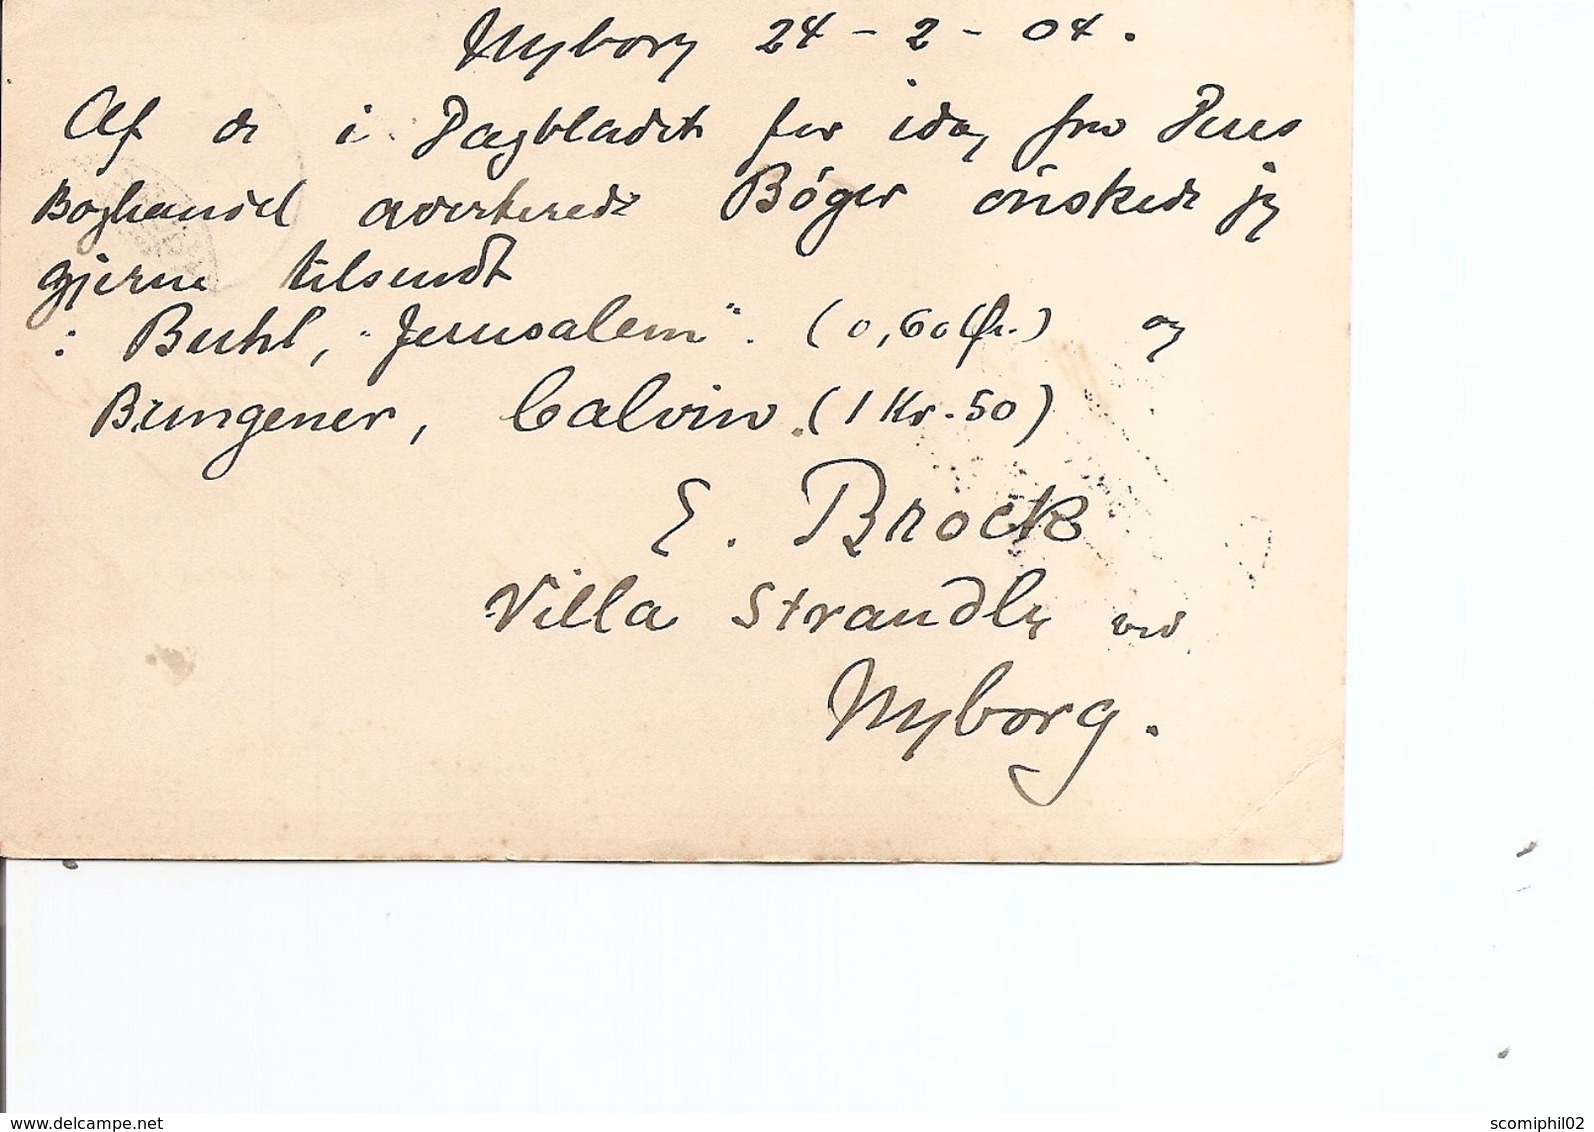 Nyborg 24-2-04.
Af de i Dagbladet for idag fra Deres
Boghandel averterede Bøger ønskede jeg
gjerne tilsendt
: Buhl, "Jerusalem". (0,60 Ør.) og
Bungener, Calvin. (1 Kr. 50)
E. Brock
Villa Strandly ved
Nyborg.
www.delcampe.net
scomiphil02